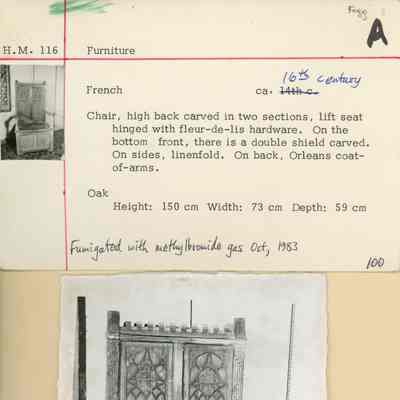 Fogg
A
H.M. 116 Furniture
16th century
French ca. 14th c.
Chair, high back carved in two sections, lift seat
hinged with fleur-de-lis hardware. On the
bottom front, there is a double shield carved.
On sides, linenfold. On back, Orleans coat-
of-arms.
Oak
Height: 150 cm Width: 73 cm Depth: 59 cm
Fumigated with methylbromide gas Oct, 1983
100